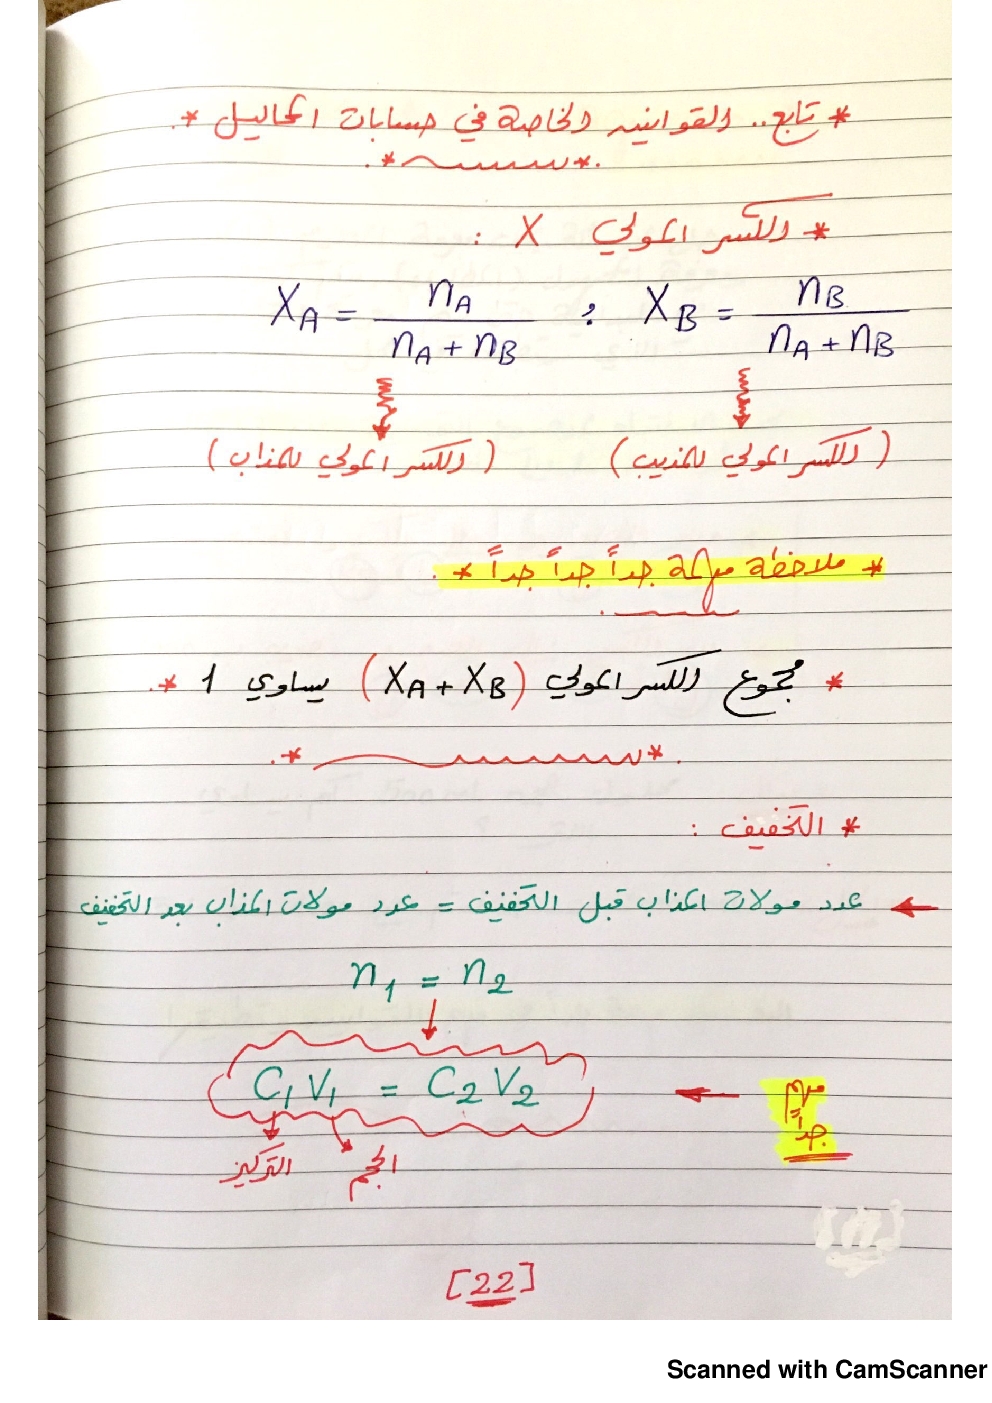 * تابع.. القوانين الخاصة في حسابات المحاليل *.
* الكسر المولي X :
X_A = n_A / (n_A + n_B) ; X_B = n_B / (n_A + n_B)
(الكسر المولي للمذيب) (الكسر المولي للمذاب)
* ملاحظة مهمة جداً جداً جداً *.
* مجموع الكسر المولي (X_A + X_B) يساوي 1 *.
* التخفيف :
← عدد مولات المذاب قبل التخفيف = عدد مولات المذاب بعد التخفيف
n₁ = n₂
مهم جداً ← C₁V₁ = C₂V₂
الحجم التركيز
[22]
Scanned with CamScanner